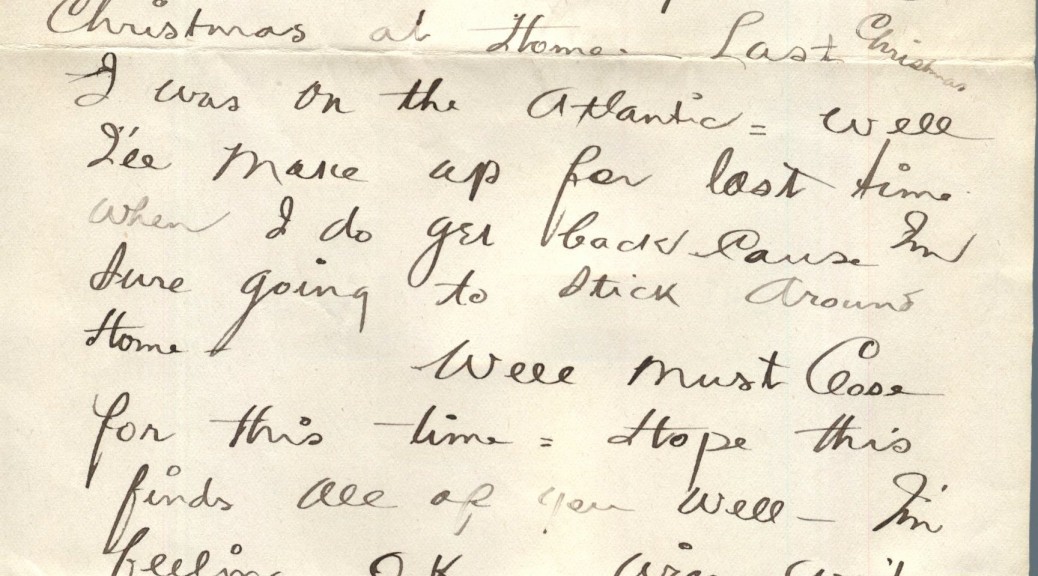 Christmas at Home. Last Christmas
I was on the Atlantic = Well
I'll make up for lost time
when I do get back Cause I'm
sure going to stick around
Home - Well must Close
for this time = Hope this
finds all of you well - I'm
feeling O.K.